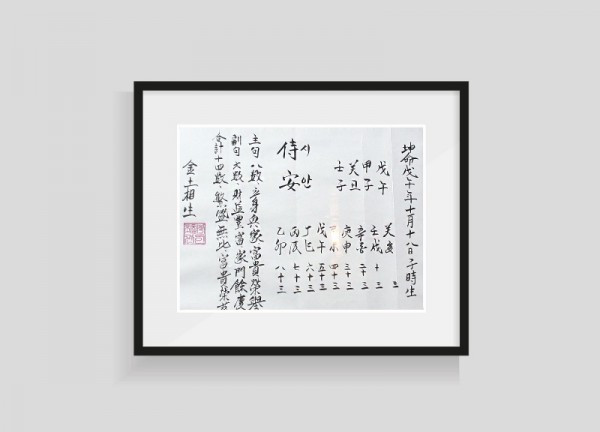 坤命戊午年十月十八日子時生
戊午
甲子
癸丑
壬子
癸亥 三
壬戌 十三
辛酉 二十三
庚申 三十三
四十三
戊午 五十三
丁巳 六十三
丙辰 七十三
乙卯 八十三
시안
侍安
主句 八數 立身興家富貴榮譽
副句 六數 財益豊富家門餘慶
合計十四數 繁盛無比富貴榮
金土相生